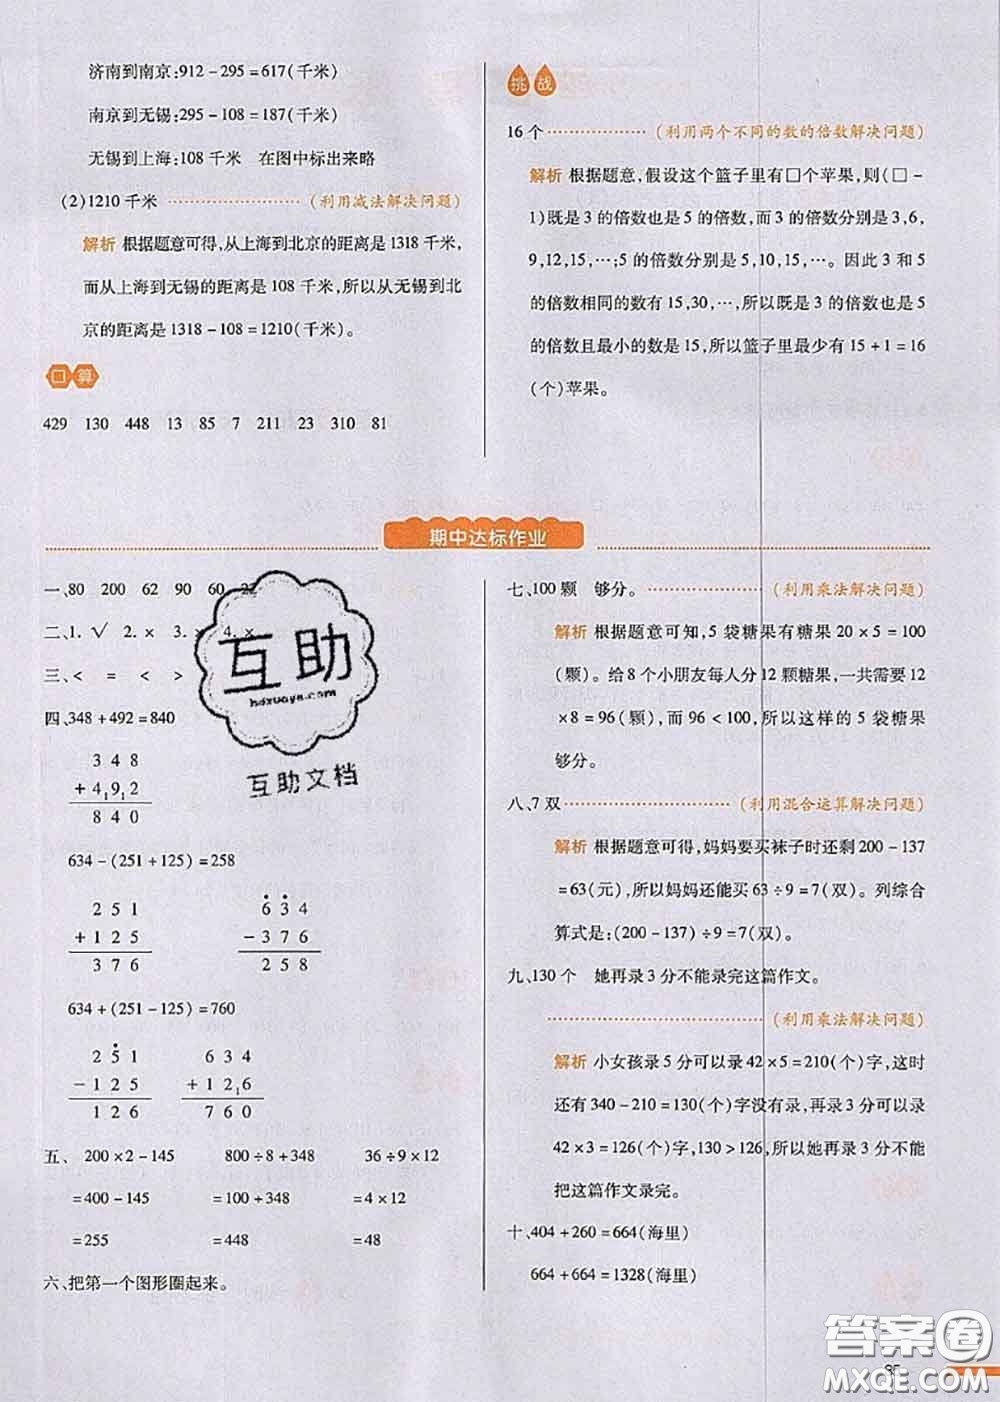 济南到南京:912-295=617(千米)
南京到无锡:295-108=187(千米)
无锡到上海:108千米 在图中标出来略
(2)1210千米 (利用减法解决问题)
解析 根据题意可得,从上海到北京的距离是1318千米,
而从上海到无锡的距离是108千米,所以从无锡到北
京的距离是1318-108=1210(千米)。
口算
429 130 448 13 85 7 211 23 310 81
挑战
16个 (利用两个不同的数的倍数解决问题)
解析 根据题意,假设这个篮子里有□个苹果,则(□-
1)既是3的倍数也是5的倍数,而3的倍数分别是3,6,
9,12,15,…;5的倍数分别是5,10,15,…。因此3和5
的倍数相同的数有15,30,…,所以既是3的倍数也是5
的倍数且最小的数是15,所以篮子里最少有15+1=16
(个)苹果。
期中达标作业
一、80 200 62 90 60 22
二、1. √ 2. × 3. × 4. ×
三、< = < >
四、348+492=840
3 4 8
+ 4₁9₁2
8 4 0
634-(251+125)=258
2 5 1
+ 1 2 5
3 7 6
6 3 4
- 3 7 6
2 5 8
634+(251-125)=760
2 5 1
- 1 2 5
1 2 6
6 3 4
+ 1 2₁6
7 6 0
五、 200×2-145 800÷8+348 36÷9×12
=400-145 =100+348 =4×12
=255 =448 =48
六、把第一个图形圈起来。
七、100颗 够分。 (利用乘法解决问题)
解析 根据题意可知,5袋糖果有糖果20×5=100
(颗)。给8个小朋友每人分12颗糖果,一共需要12
×8=96(颗),而96<100,所以这样的5袋糖果
够分。
八、7双 (利用混合运算解决问题)
解析 根据题意可得,妈妈要买袜子时还剩200-137
=63(元),所以妈妈还能买63÷9=7(双)。列综合
算式是:(200-137)÷9=7(双)。
九、130个 她再录3分不能录完这篇作文。
(利用乘法解决问题)
解析 小女孩录5分可以录42×5=210(个)字,这时
还有340-210=130(个)字没有录,再录3分可以录
42×3=126(个)字,130>126,所以她再录3分不能
把这篇作文录完。
十、404+260=664(海里)
664+664=1328(海里)
互助
hdzuoye.com
互助文档
答案圈
MXQE.COM